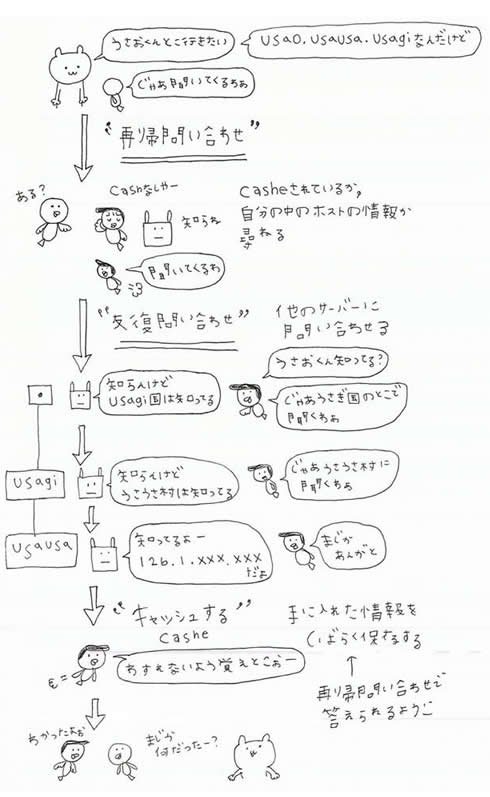 うさおくんとこ行きたい
usao.usausa.usagiなんだけど
じゃあ聞いてくるちお
"再帰問い合わせ"
ある?
cashなしやー
知らね
casheされているか,
自分の中のホストの情報か
尋ねる
聞いてくるわ
"反復問い合わせ"
他のサーバーに
問い合わせる
うさおくん知ってる?
知らんけど
usagi国は知ってる
じゃあうさぎ国のとこで
聞くわお
usagi
知らんけど
うさうさ村は知ってる
じゃあうさうさ村に
聞くわお
usausa
知ってるよー
126.1.xxx.xxx
だよ
まじか
あんがと
"キャッシュする"
cashe
手に入れた情報を
しばらく保存する
わすれないよう覚えとこおー
再帰問い合わせで
答えられるように
わかったお
まじか
何だったー?